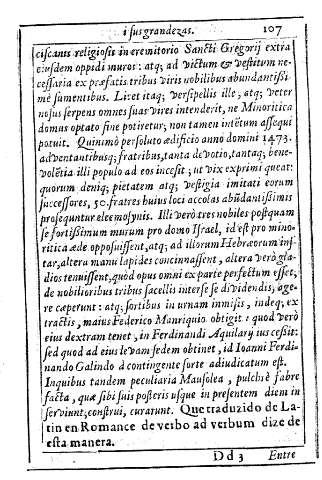 i sus grandezas. 107
ciscanis religiosis in eremitorio Sancti Gregorij extra
eiusdem oppidi muros: atq; ad victum & vestitum ne-
cessaria ex præfatis tribus viris nobilibus abundantissi-
mè sumentibus. Licet itaq; versipellis ille, atq; veter
nosus serpens omnes suas vires intenderit, ne Minoritica
domus optato fine potiretur; non tamen intẽtum assequi
potuit. Quinimò persoluto ædificio anno domini 1473.
adventantibusq; fratribus, tanta devotio, tantaq; bene-
volẽtia illi populo ad eos incesit; ut vix exprimi queat:
quorum deniq; pietatem atq; vestigia imitati eorum
successores, 50. fratres huius loci accolas abũdantissimis
prosequntur eleemosynis. Illi verò tres nobiles postquam
se fortissimum murum pro domo Israel, id est pro mino-
ritica æde opposuissent, atq; ad illorum Hebræorum ins-
tar, altera manu lapides concinnassent, altera verò gla-
dios tenuissent, quòd opus omni ex parte perfectum esset,
de nobilioribus tribus sacellis inter se se dividendis, age-
re cæperunt: atq; sortibus in urnam inmisis, indeq; ex
tractis, maius Federico Manriquio obtigit: quod verò
eius dextram tenet, in Ferdinandi Aquilarij ius cessit:
sed quod ad eius levam sedem obtinet, id Ioanni Ferdi-
nando Galindo à contingente sorte adiudicatum est.
Inquibus tandem peculiaria Mausolea, pulchrè fabre
facta, quæ sibi suis posteris usque in presentem diem in
serviunt; construi, curarunt. Que traduzido de La-
tin en Romance de verbo ad verbum dize de
esta manera.
Dd3 Entre